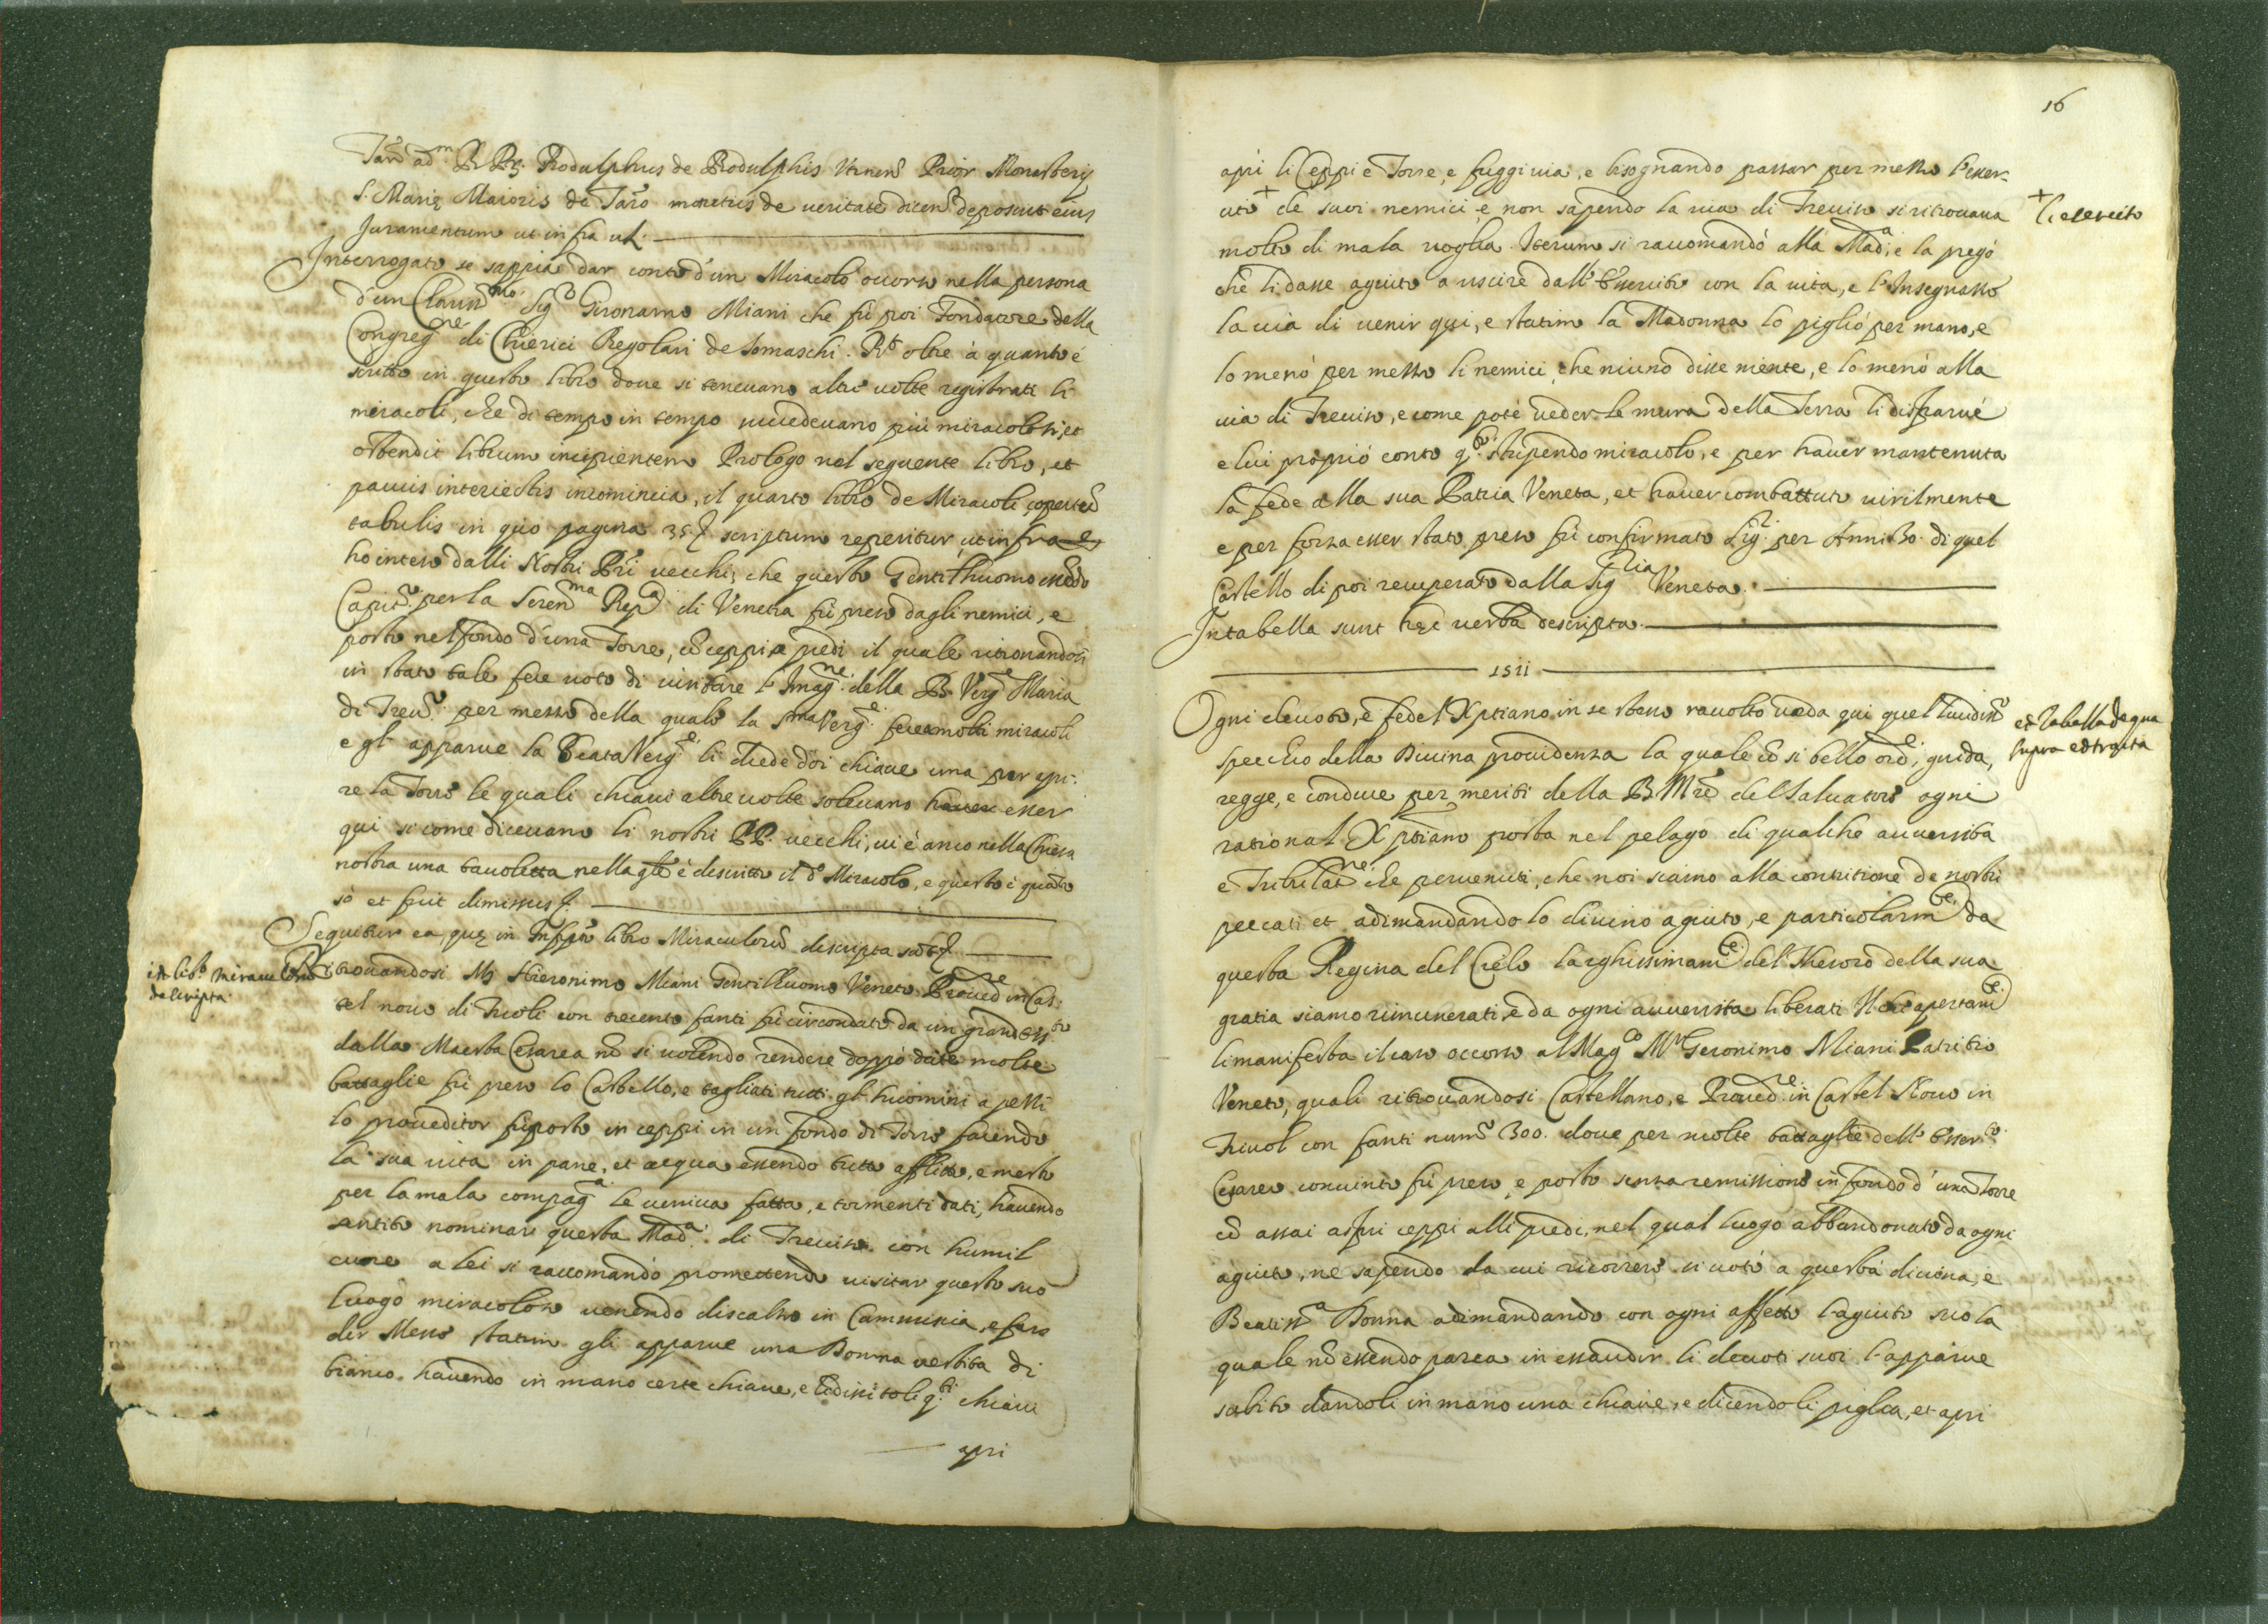 Tar.ō ad.m R. P. Rodulphus de Rodulphis Prior Monasterij
S. Marię Maioris de Tar.ō monitus de veritate dicen. deposuit eius
Juramentum ut infra vz.
Interrogato se sappia dar conto d'un Miracolo occorso nella persona
d'un Clariss.mo Sig.r Gironamo Miani che fù poi Fondatore della
Congreg.ne di Chierici Regolari de Somaschi. R.t oltre à quanto é
scritto in questo libro doue si teneuano altre uolte registrati li
miracoli, che di tempo in tempo succedeuano più miracolosi, et
ostendit librum incipientem Prologo nel seguente libro, et
paucis interiectis incomincia, il quarto libro de Miracoli, copertū
tabulis in quo pagina 35. scriptum reperitur, ut infra e
ho inteso dalli Nostri Pri uecchi, che questo Gentilhuomo essēdo
Capit.o per la Seren.ma Rep.a di Venetia fù preso dagli nemici, e
posto nel fondo d'una Torre, cō ceppi a piedi il quale ritrouandosi
in stato tale fece uoto di uisitare l'Imag.ne della B. Verg.e Maria
di Treu.o per mezzo della quale la S.ma Verg.e fece molti miracoli
e gl' apparue la Beata Verg.e li diede doi chiaue una per apri:
re la Torre le quali chiaui altre uolte soleuano hauere esser
qui si come diceuano li nostri PP. uecchi, ui é anco nella Chiesa
nostra una tauoletta nella qle é descritto il d.o Miracolo, e questo é quāto
sò et fuit dimissus.
Sequitur ea, quę in Insc.pto libro Miraculorū descripta sūt
in lib.o miraculorū
descripta
Ritrouandosi M. Hieronimo Miani Gentilhuomo Veneto Proued.re in Cas:
tel nouo di Frioli con trecento fanti fù circondato da un grand ess.to
dalla Maesta Cesarea nō si uolendo rendere doppò date molte
battaglie fù preso lo Castello, e tagliati tutti gl' huomini a pezzi
lo proueditor fù posto in ceppi in un fondo di Torre facendo
la sua uita in pane, et acqua essendo tutto afflitto, e mesto
per la mala compag.a le ueniua fatta, e tormenti dati, hauendo
sentito nominare questa Mad.a di Treuiso con humil
cuore a lei si raccomandò promettendo uisitar questo suo
luogo miracoloso uenendo discalzo in Cammisia, e fare
dir Messe statim gli apparue una Donna uestita di
bianco hauendo in mano certe chiaue, e li disse toli q.ti chiaui
apri
16
aprì li Ceppi e Torre, e fuggi uia, e bisognando passar per mezzo l'esser-
cito + de suoi nemici e non sapendo la uia di Treuiso si ritrouaua
+ l'esercito
molto di mala uoglia. Iterum si raccomandò alla Mad.a, e la pregò
che li dasse agiuto a uscire dall' esserciti con la uita, e l'Insegnasse
la uia di uenir qui, e statim la Madonna lo pigliò per mano, e
lo menò per mezzo li nemici, che niuno disse niente, e lo menò alla
uia di Treuiso, e come potè ueder le mura della Terra li disparue
e lui proprio contò q.to stupendo miracolo, e per hauer mantenuta
la fede alla sua Patria Veneta, et hauer combattuto uirilmente
e per forza esser stato preso fù confirmato Sig.r per Anni 30. di quel
Castello di poi recuperato dalla Sig.ria Veneta.
In tabella sunt hęc uerba descripta.
1511
Ogni deuoto, e fedel Xptiano in se stesso racolto ueda qui quel lucidiss.o
et Tabella de qua
supra extracta
specchio della Diuina prouidenza la quale cō si bello ord.e, guida,
regge, e conduce per meriti della B. Mrē del Saluatore ogni
rational Xptiano posta nel pelago di qualche auuersità
e Tribulat.ne che peruenuti, che noi siamo alla contritione de nostri
peccati et adimandando lo diuino agiuto, e particolarm.te da
questa Regina del Cielo larghissimam.te del Thesoro della sua
gratia siamo rimunerati, e da ogni auuersita liberati Il che apertam.te
li manifesta il caso occorso al Mag.co M.r Geronimo Miani Patritio
Veneto, quali ritrouandosi Castellano, e Proued.re in Castel Nouo in
Friuol con fanti num.o 300. doue per molte battaglie dell' Esser.to
Cesareo conuinto fù preso, e posto senza remissione in fondo d' una Torre
cō assai aspri ceppi alli piedi, nel qual luogo abbandonato da ogni
agiuto, ne sapendo da cui ricorrere, si uotò à questa diuina, e
Beatiss.a Donna adimandando con ogni affetto l'agiuto suo la
quale nō essendo parca in essaudir li deuoti suoi l'apparue
subito dandoli in mano una chiaue, e dicendoli piglia, et apri